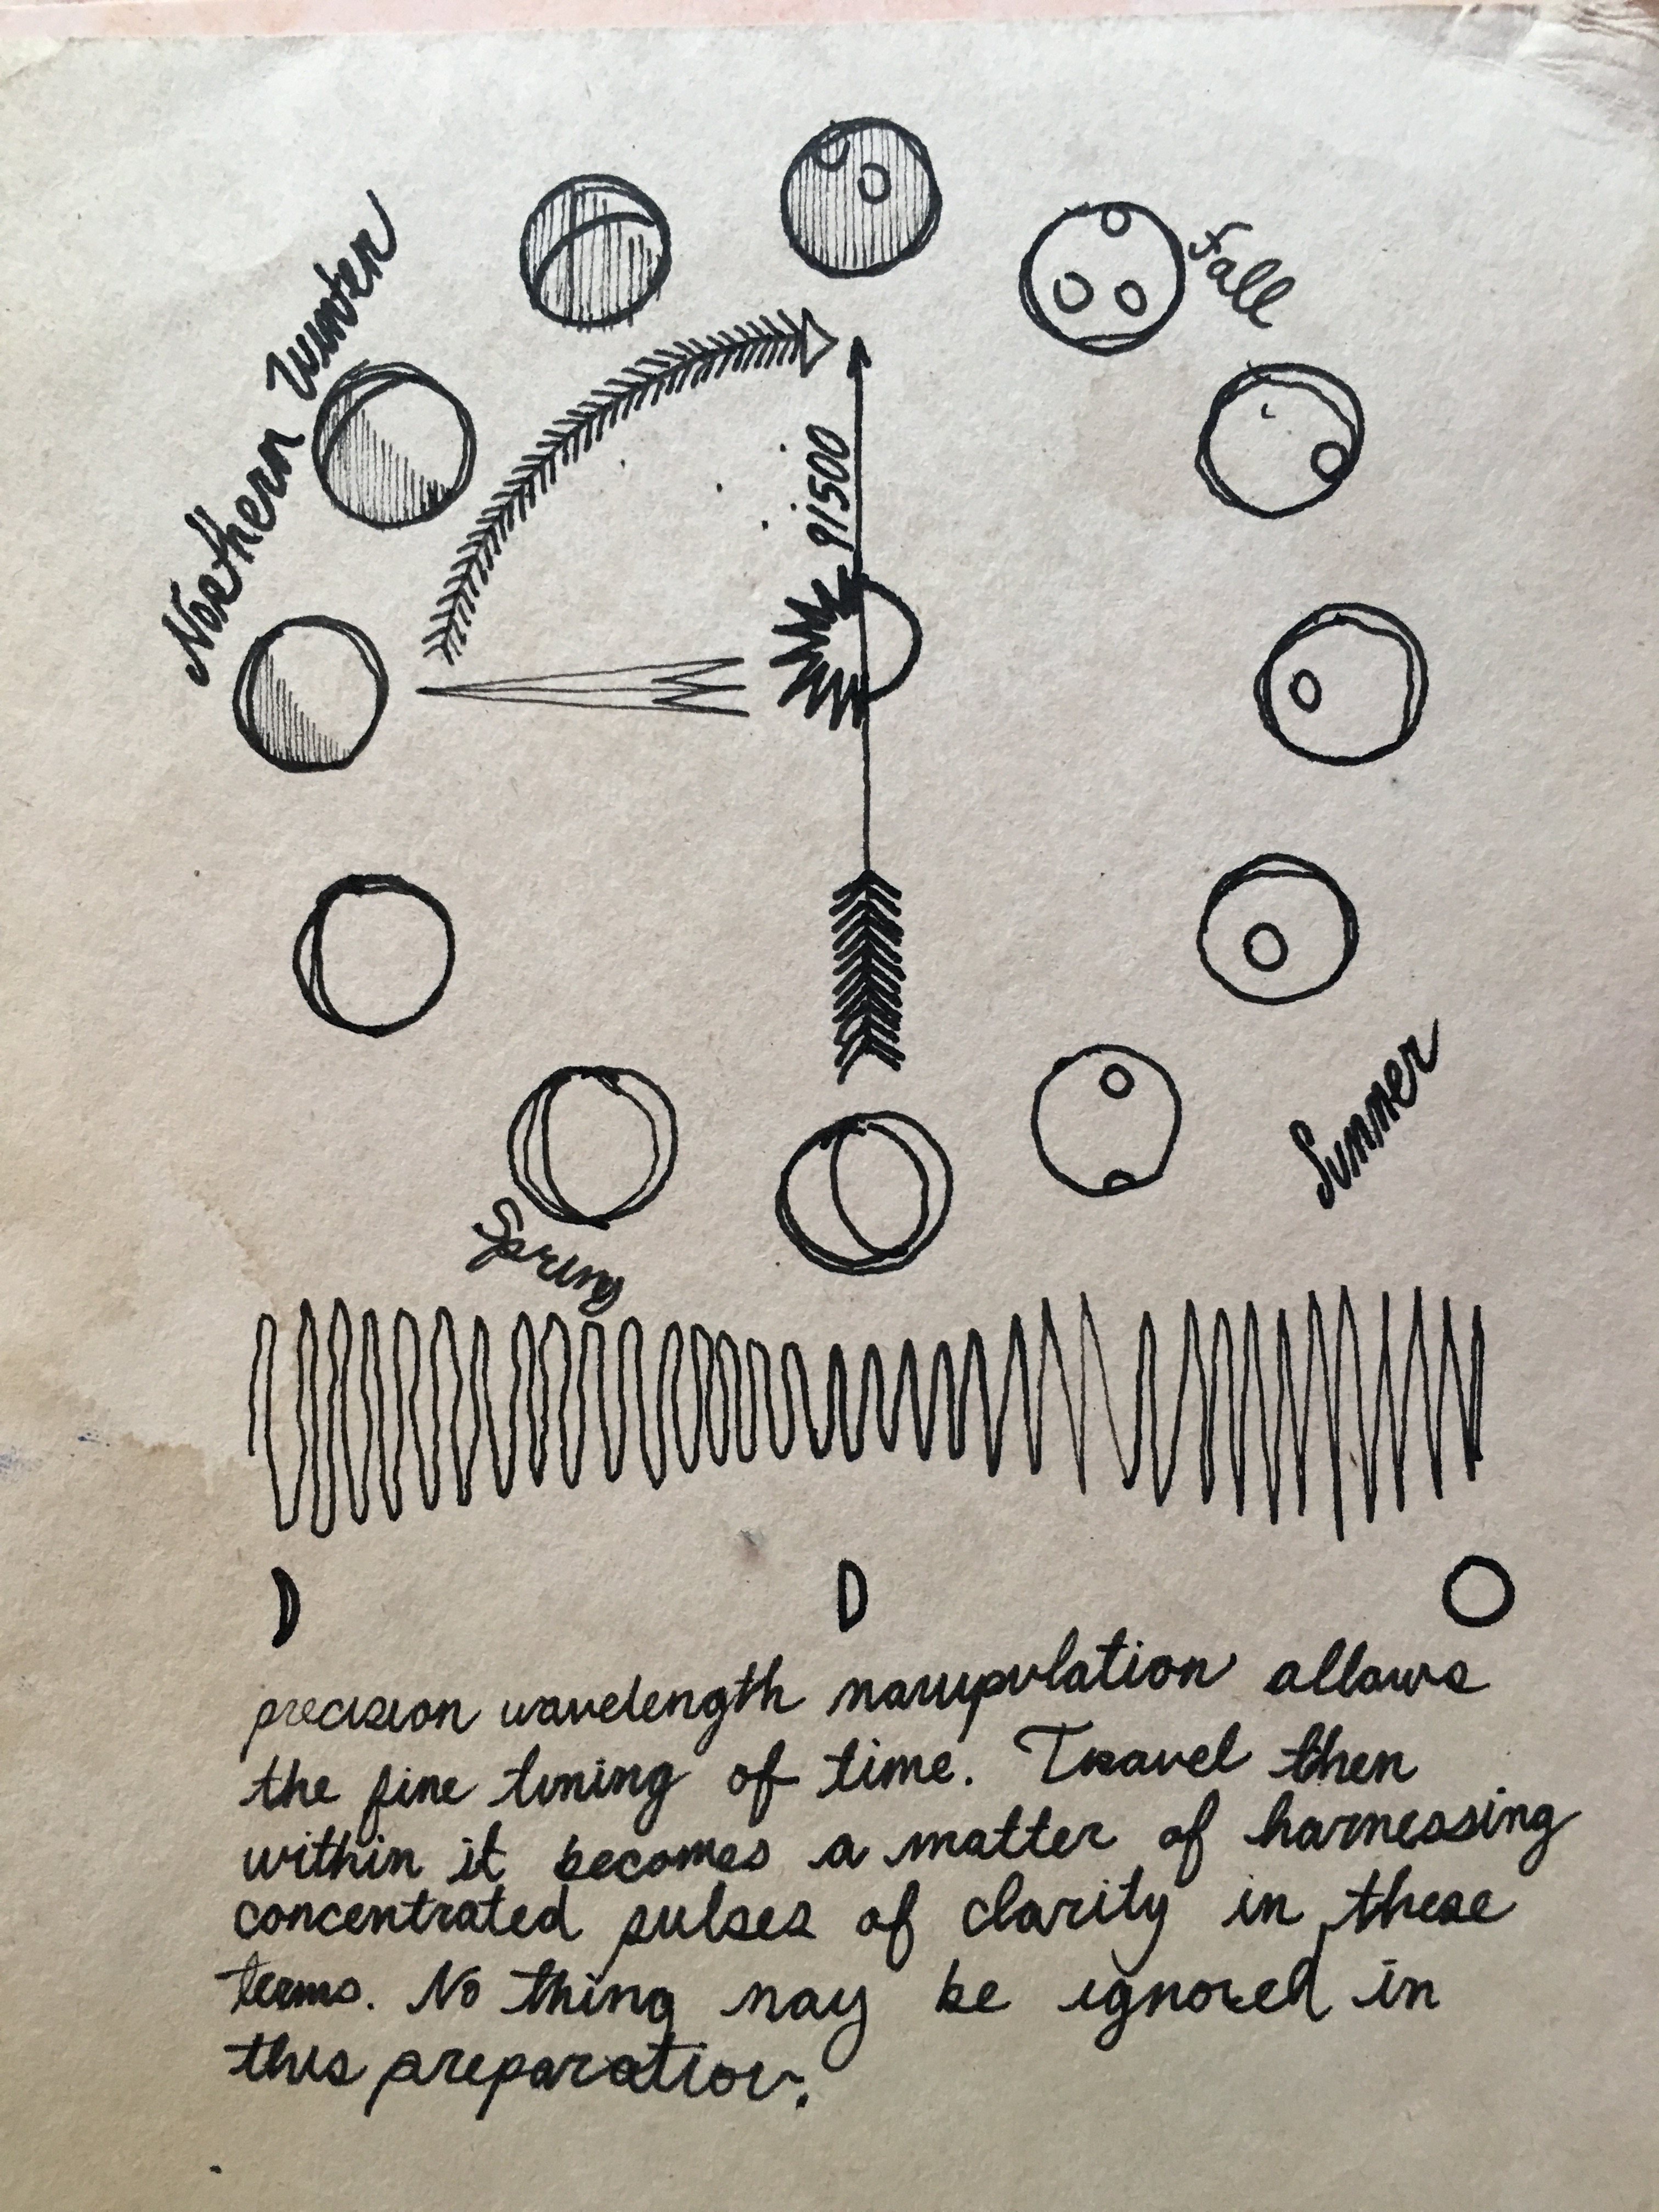 Northern Winter
Fall
91500
Summer
Spring
precision wavelength manupulation allows
the fine tuning of time. Travel then
within it becomes a matter of harnessing
concentrated pulses of clarity in these
terms. No thing may be ignored in
this preparation.